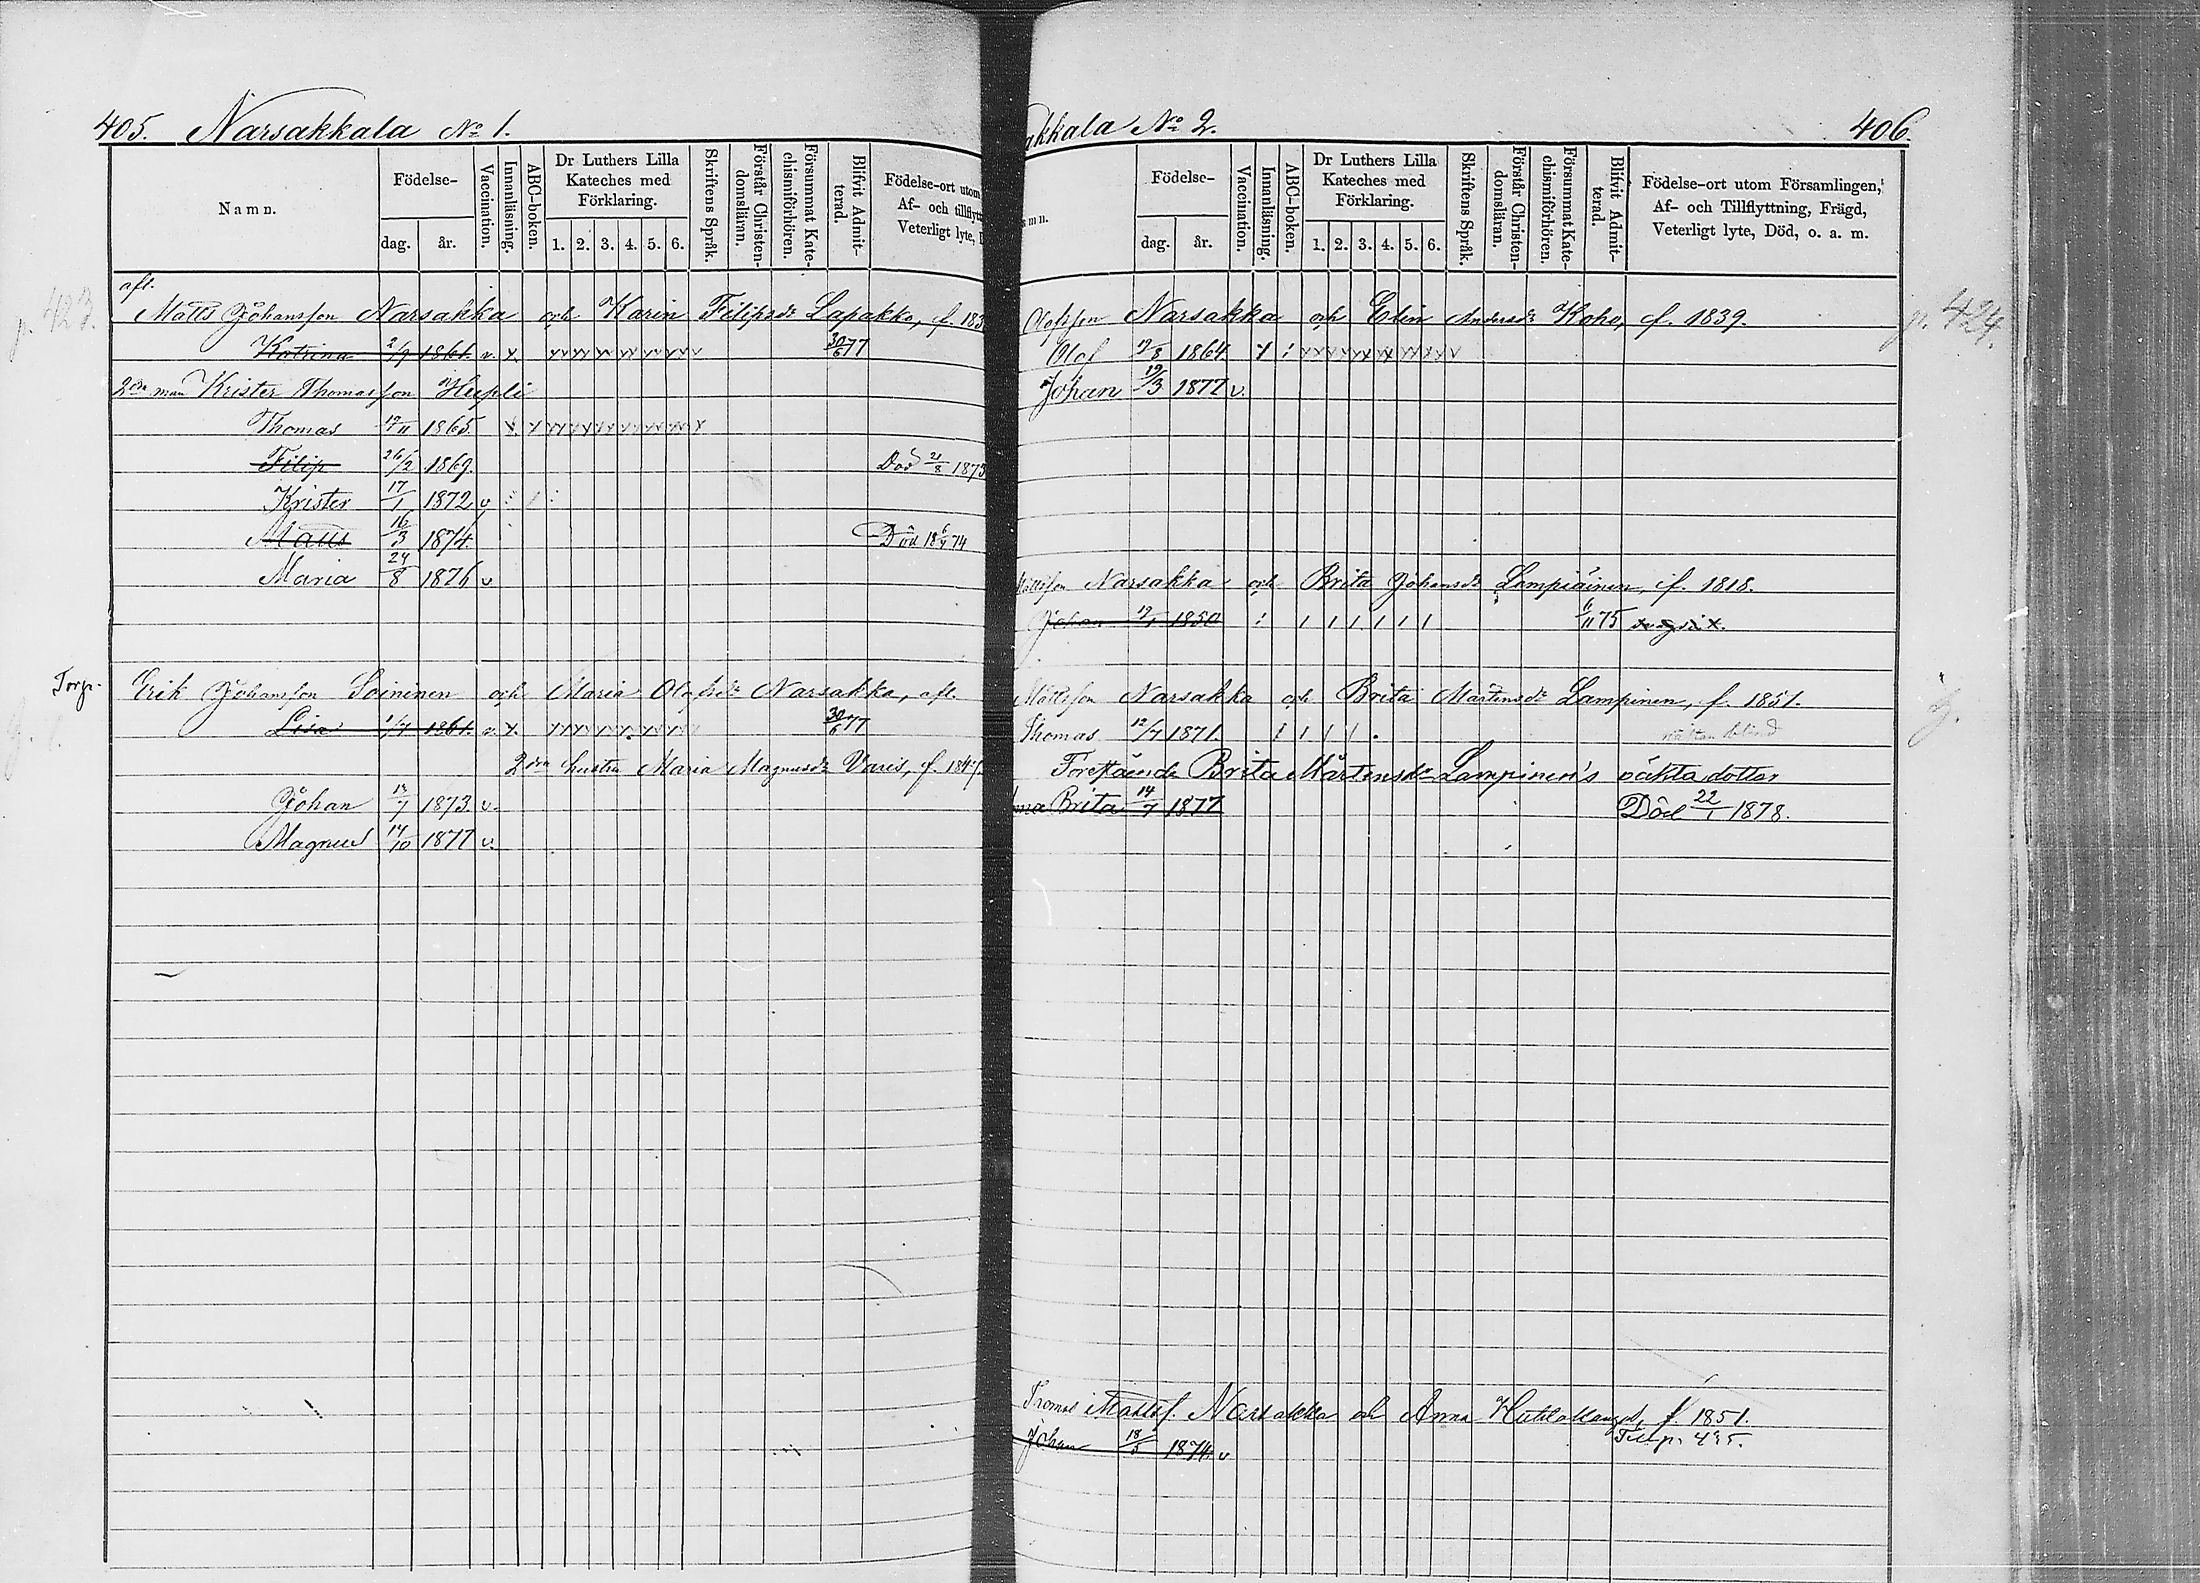 405. Narsakkala No 1.
Namn.
Födelse-
dag.
år.
Vaccination.
Innanläsning.
ABC-boken.
Dr Luthers Lilla
Kateches med
Förklaring.
1. 2. 3. 4. 5. 6.
Skriftens Språk.
Förstår Christen-
domsläran.
Försummat Kate-
chismiförhören.
Blifvit Admit-
terad.
Födelse-ort utom
Af- och tillflytt
Veterligt lyte,
afl.
p. 423.
Matts Johansson Narsakka och Karin Filipsdr Lapakko, f. 183
Katrina 2/9 1861. v. x. 30/6 77
2dra man Krister Thomasson Hupli
Thomas 17/11 1865.
Filip 26/2 1869. Död 21/8 1873
Krister 17/1 1872 v
Matts 16/3 1874. Död 18 6/7 74
Maria 24/8 1876 v
Torp.
Erik Johansson Soininen och Maria Olofsdr Narsakka, afl.
Lisa 1/7 1861. v. x. 30/6 77
2dra hustru Maria Magnusdr Varis, f. 1847.
Johan 13/7 1873. v.
Magnus 14/10 1877 v.
akkala No 2. 406.
mn.
Födelse-
dag.
år.
Vaccination.
Innanläsning.
ABC-boken.
Dr Luthers Lilla
Kateches med
Förklaring.
1. 2. 3. 4. 5. 6.
Skriftens Språk.
Förstår Christen-
domsläran.
Försummat Kate-
chismiförhören.
Blifvit Admit-
terad.
Födelse-ort utom Församlingen,
Af- och Tillflyttning, Frägd,
Veterligt lyte, Död, o. a. m.
Olofsson Narsakka och Elin Andersdr Koho, f. 1839.
p. 424.
Olof 19/8 1864.
Johan 19/3 1877 v.
Mattsson Narsakka och Brita Johansdr Lampiäinen, f. 1818.
Johan 17/1 1850 6/11 75
Mattsson Narsakka och Brita Mårtensdr Lampinen, f. 1851.
Thomas 12/7 1871. nästan blind
Föreståënde Brita Mårtensdr Lampinen's oäkta dotter
Anna Brita 14/7 1877 Död 22/1 1878.
Thomas Mattsf. Narsakka och Anna f. 1851.
Johan 18/5 1874. v Till p. 435.